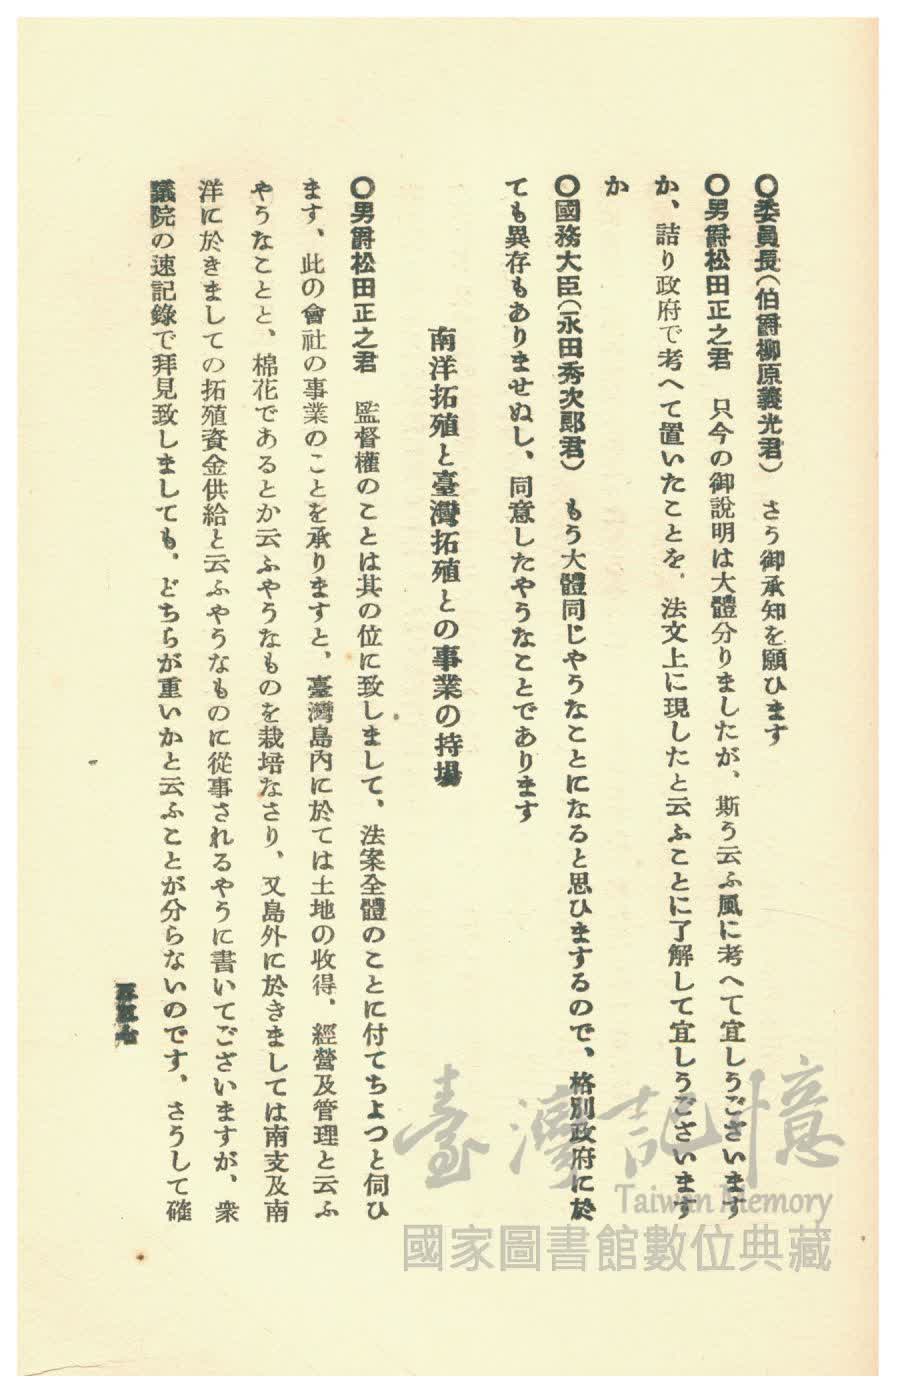 〇委員長（伯爵柳原義光君）　さう御承知を願ひます
〇男爵松田正之君　只今の御說明は大體分りましたが、斯う云ふ風に考へて宜しうございます
か、詰り政府で考へて置いたことを、法文上に現したと云ふことに了解して宜しうございます
か
〇國務大臣（永田秀次郎君）　もう大體同じやうなことになると思ひまするので、格別政府に於
ても異存もありませぬし、同意したやうなことであります
南洋拓殖と臺灣拓殖との事業の持場
〇男爵松田正之君　監督權のことは其の位に致しまして、法案全體のことに付てちよつと伺ひ
ます、此の會社の事業のことを承りますと、臺灣島內に於ては土地の收得、經營及管理と云ふ
やうなことと、棉花であるとか云ふやうなものを栽培なさり、又島外に於きましては南支及南
洋に於きましての拓殖資金供給と云ふやうなものに從事されるやうに書いてございますが、衆
議院の速記錄で拜見致しましても、どちらが重いかと云ふことが分らないのです、さうして確
臺灣記憶
Taiwan Memory
國家圖書館數位典藏